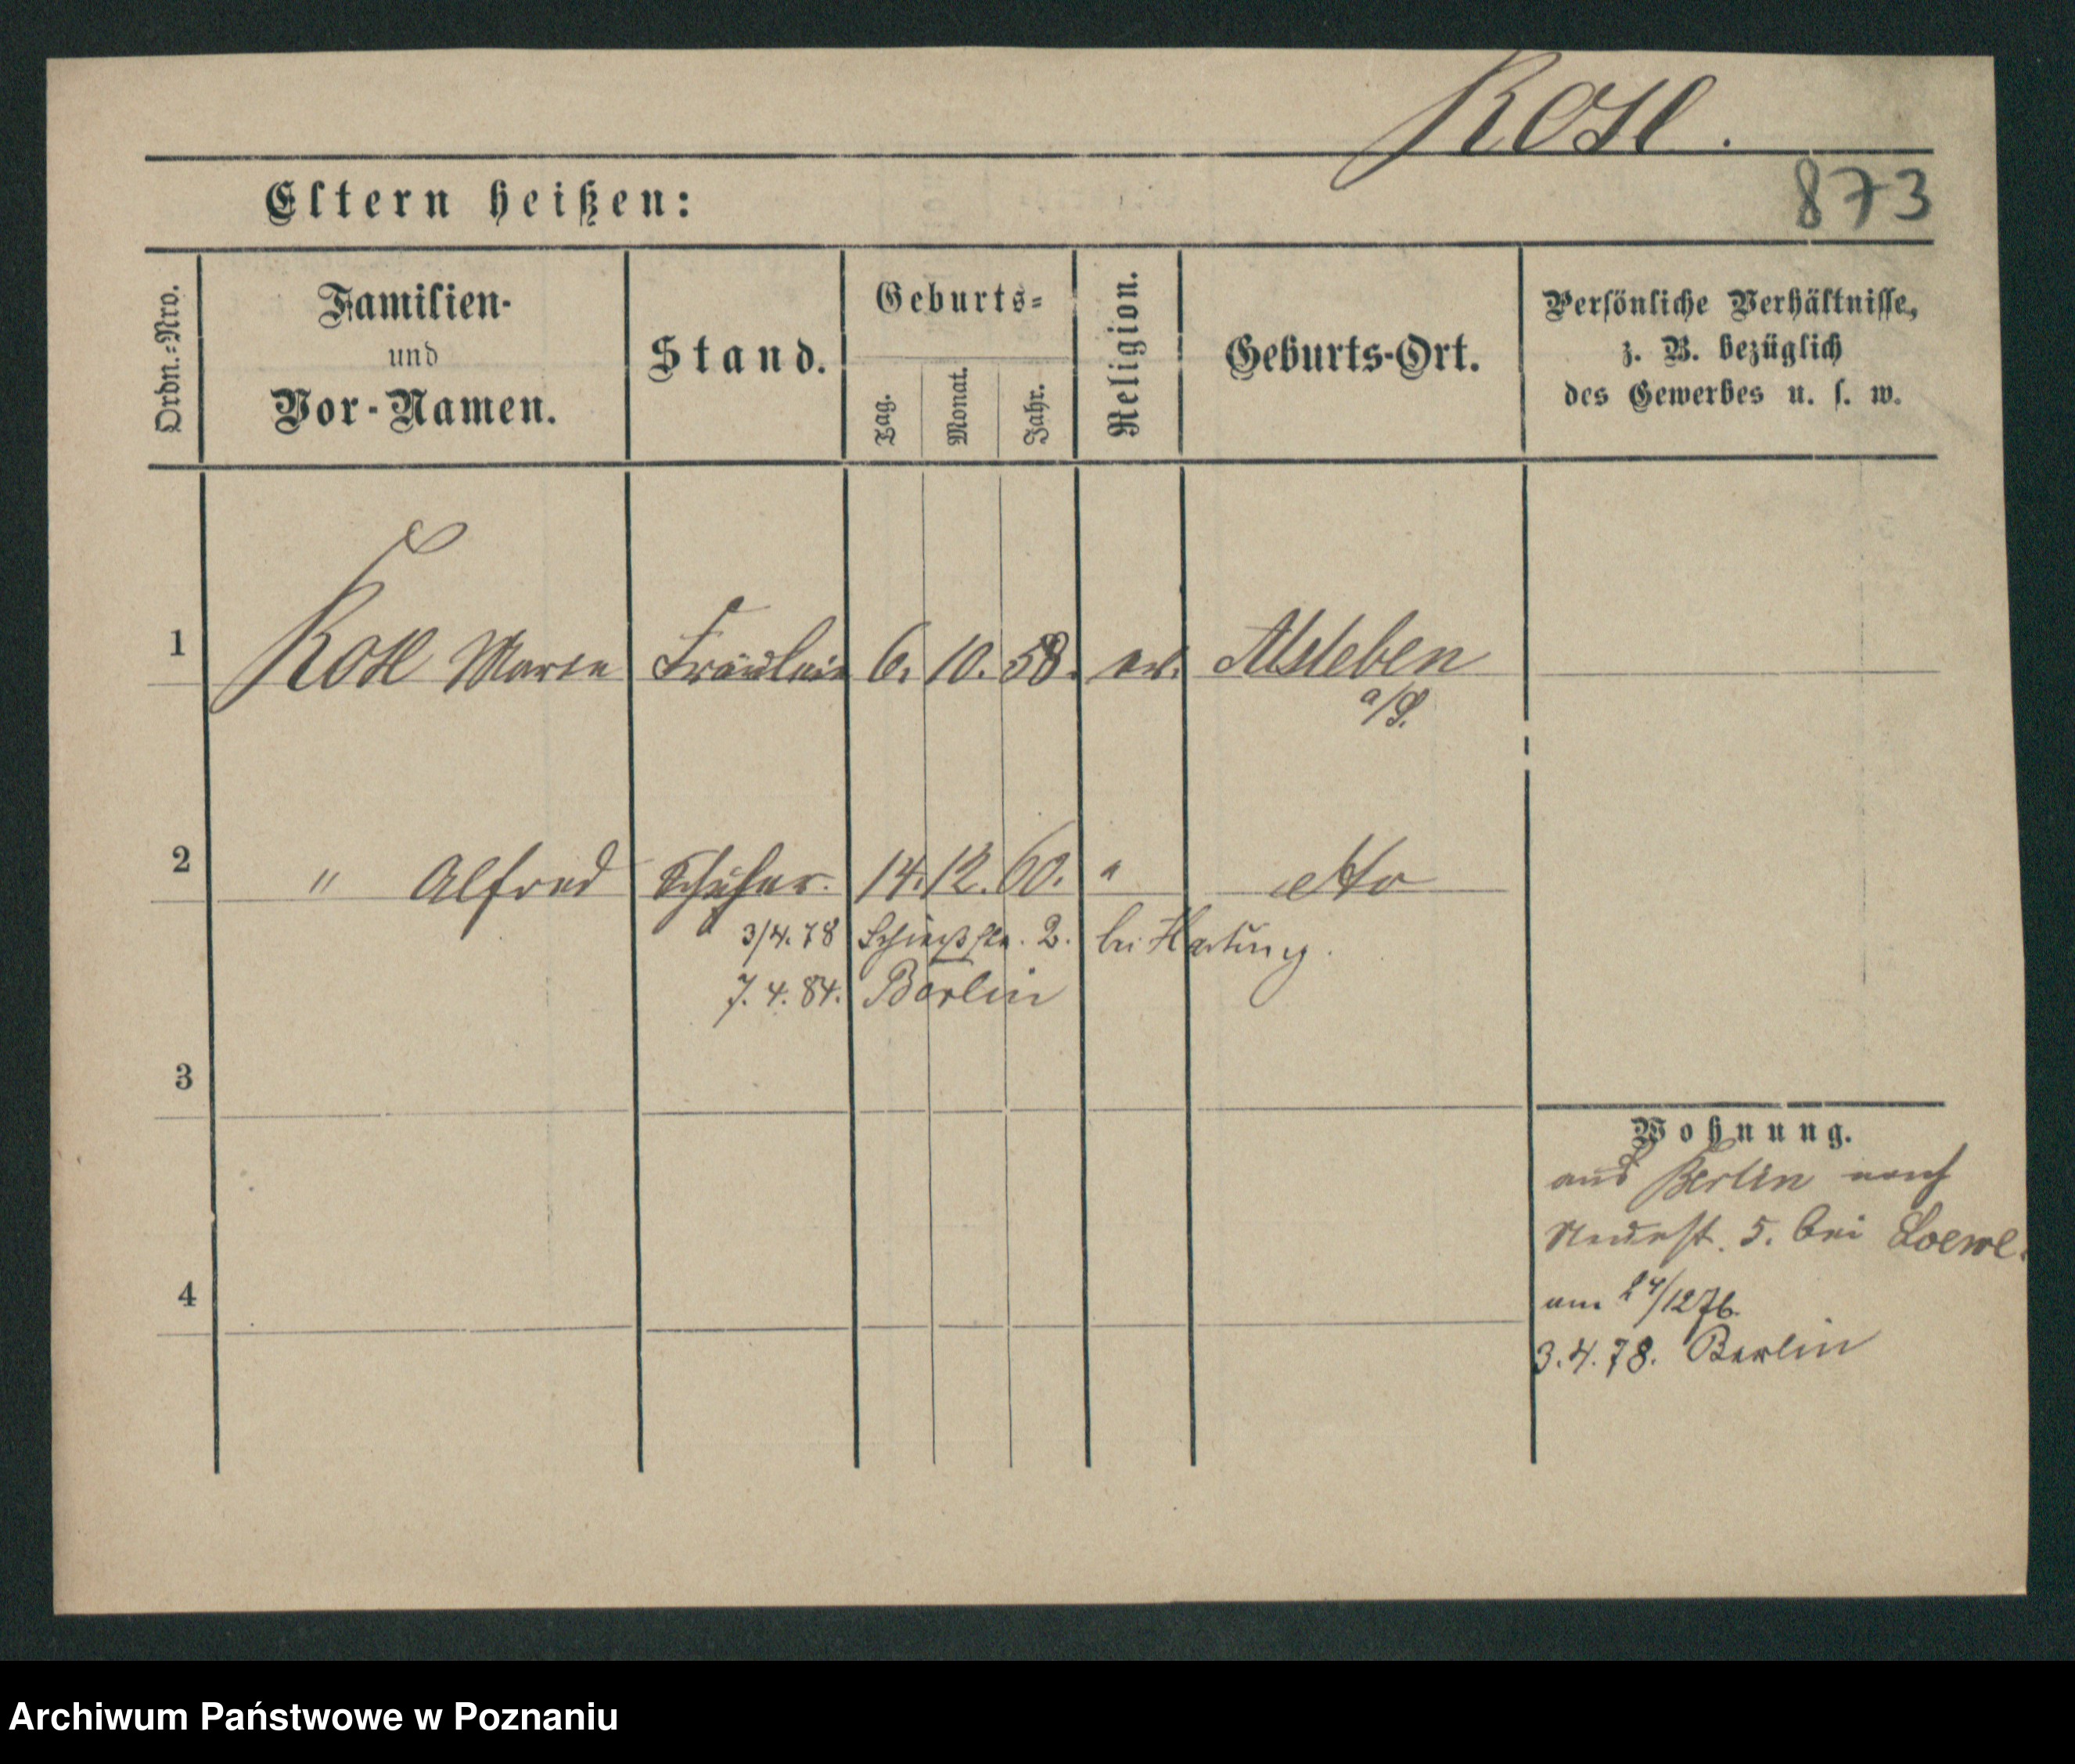 Kosl.
873
Eltern heißen:
Ordn.=Nro.
Familien-
und
Vor-Namen.
Stand.
Geburts=
Tag.
Monat.
Jahr.
Religion.
Geburts-Ort.
Persönliche Verhältnisse,
z. B. bezüglich
des Gewerbes u. s. w.
1 Marie Fräulein 6. 10. 58. ev. Alsleben
a/S.
2 " Alfred 14. 12. 60. " dto
3/4. 78 Schießstr. 2. bei Hartung.
7. 4. 84. Berlin
3
4
Wohnung.
aus Berlin nach
Neuest. 5. bei Loewe.
am /12 76.
3. 4. 78. Berlin
Archiwum Państwowe w Poznaniu